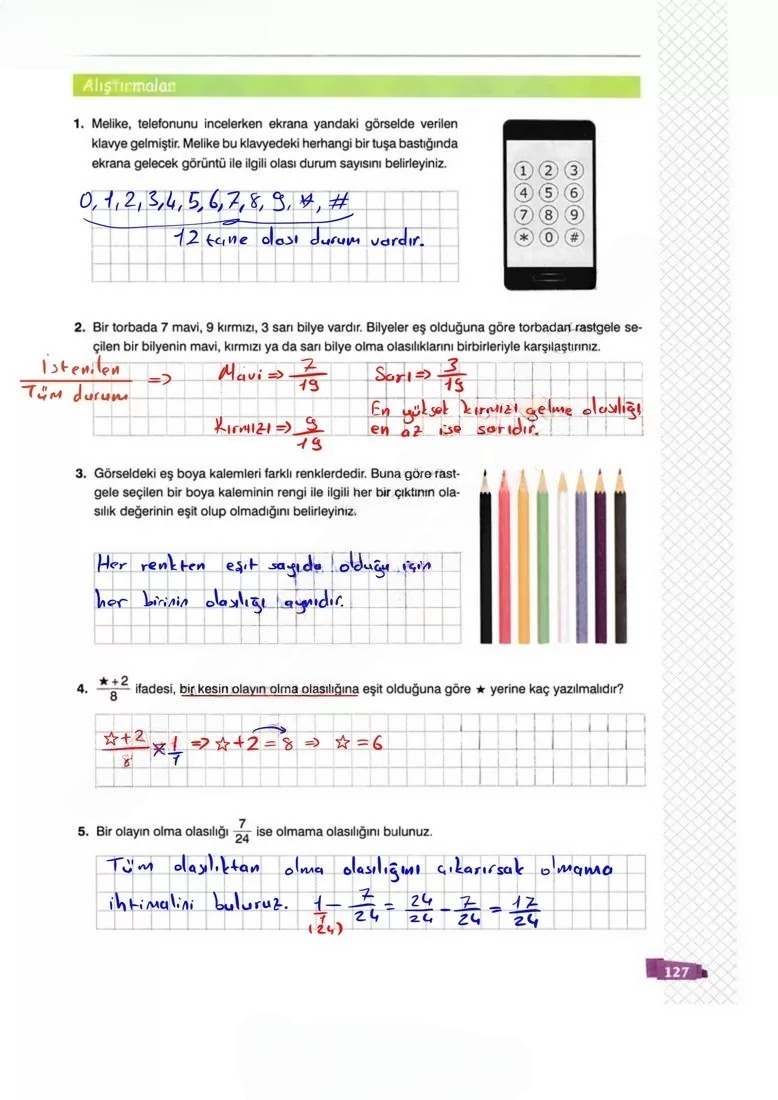 Alıştırmalar
1. Melike, telefonunu incelerken ekrana yandaki görselde verilen
klavye gelmiştir. Melike bu klavyedeki herhangi bir tuşa bastığında
ekrana gelecek görüntü ile ilgili olası durum sayısını belirleyiniz.
1 2 3
4 5 6
7 8 9
* 0 #
0, 1, 2, 3, 4, 5, 6, 7, 8, 9, *, #
12 tane olası durum vardır.
2. Bir torbada 7 mavi, 9 kırmızı, 3 sarı bilye vardır. Bilyeler eş olduğuna göre torbadan rastgele se-
çilen bir bilyenin mavi, kırmızı ya da sarı bilye olma olasılıklarını birbirleriyle karşılaştırınız.
İstenilen/Tüm durum => Mavi => 7/19 Sarı => 3/19
Kırmızı => 9/19 En yüksek kırmızı gelme olasılığı
en az ise sarıdır.
3. Görseldeki eş boya kalemleri farklı renklerdedir. Buna göre rast-
gele seçilen bir boya kaleminin rengi ile ilgili her bir çıktının ola-
sılık değerinin eşit olup olmadığını belirleyiniz.
Her renkten eşit sayıda olduğu için
her birinin olasılığı aynıdır.
4. ★+2/8 ifadesi, bir kesin olayın olma olasılığına eşit olduğuna göre ★ yerine kaç yazılmalıdır?
☆+2/8 × 1/1 => ☆+2 = 8 => ☆ = 6
5. Bir olayın olma olasılığı 7/24 ise olmama olasılığını bulunuz.
Tüm olasılıktan olma olasılığını çıkarırsak olmama
ihtimalini buluruz. 1/1 - 7/24 = 24/24 - 7/24 = 17/24
(24)
127